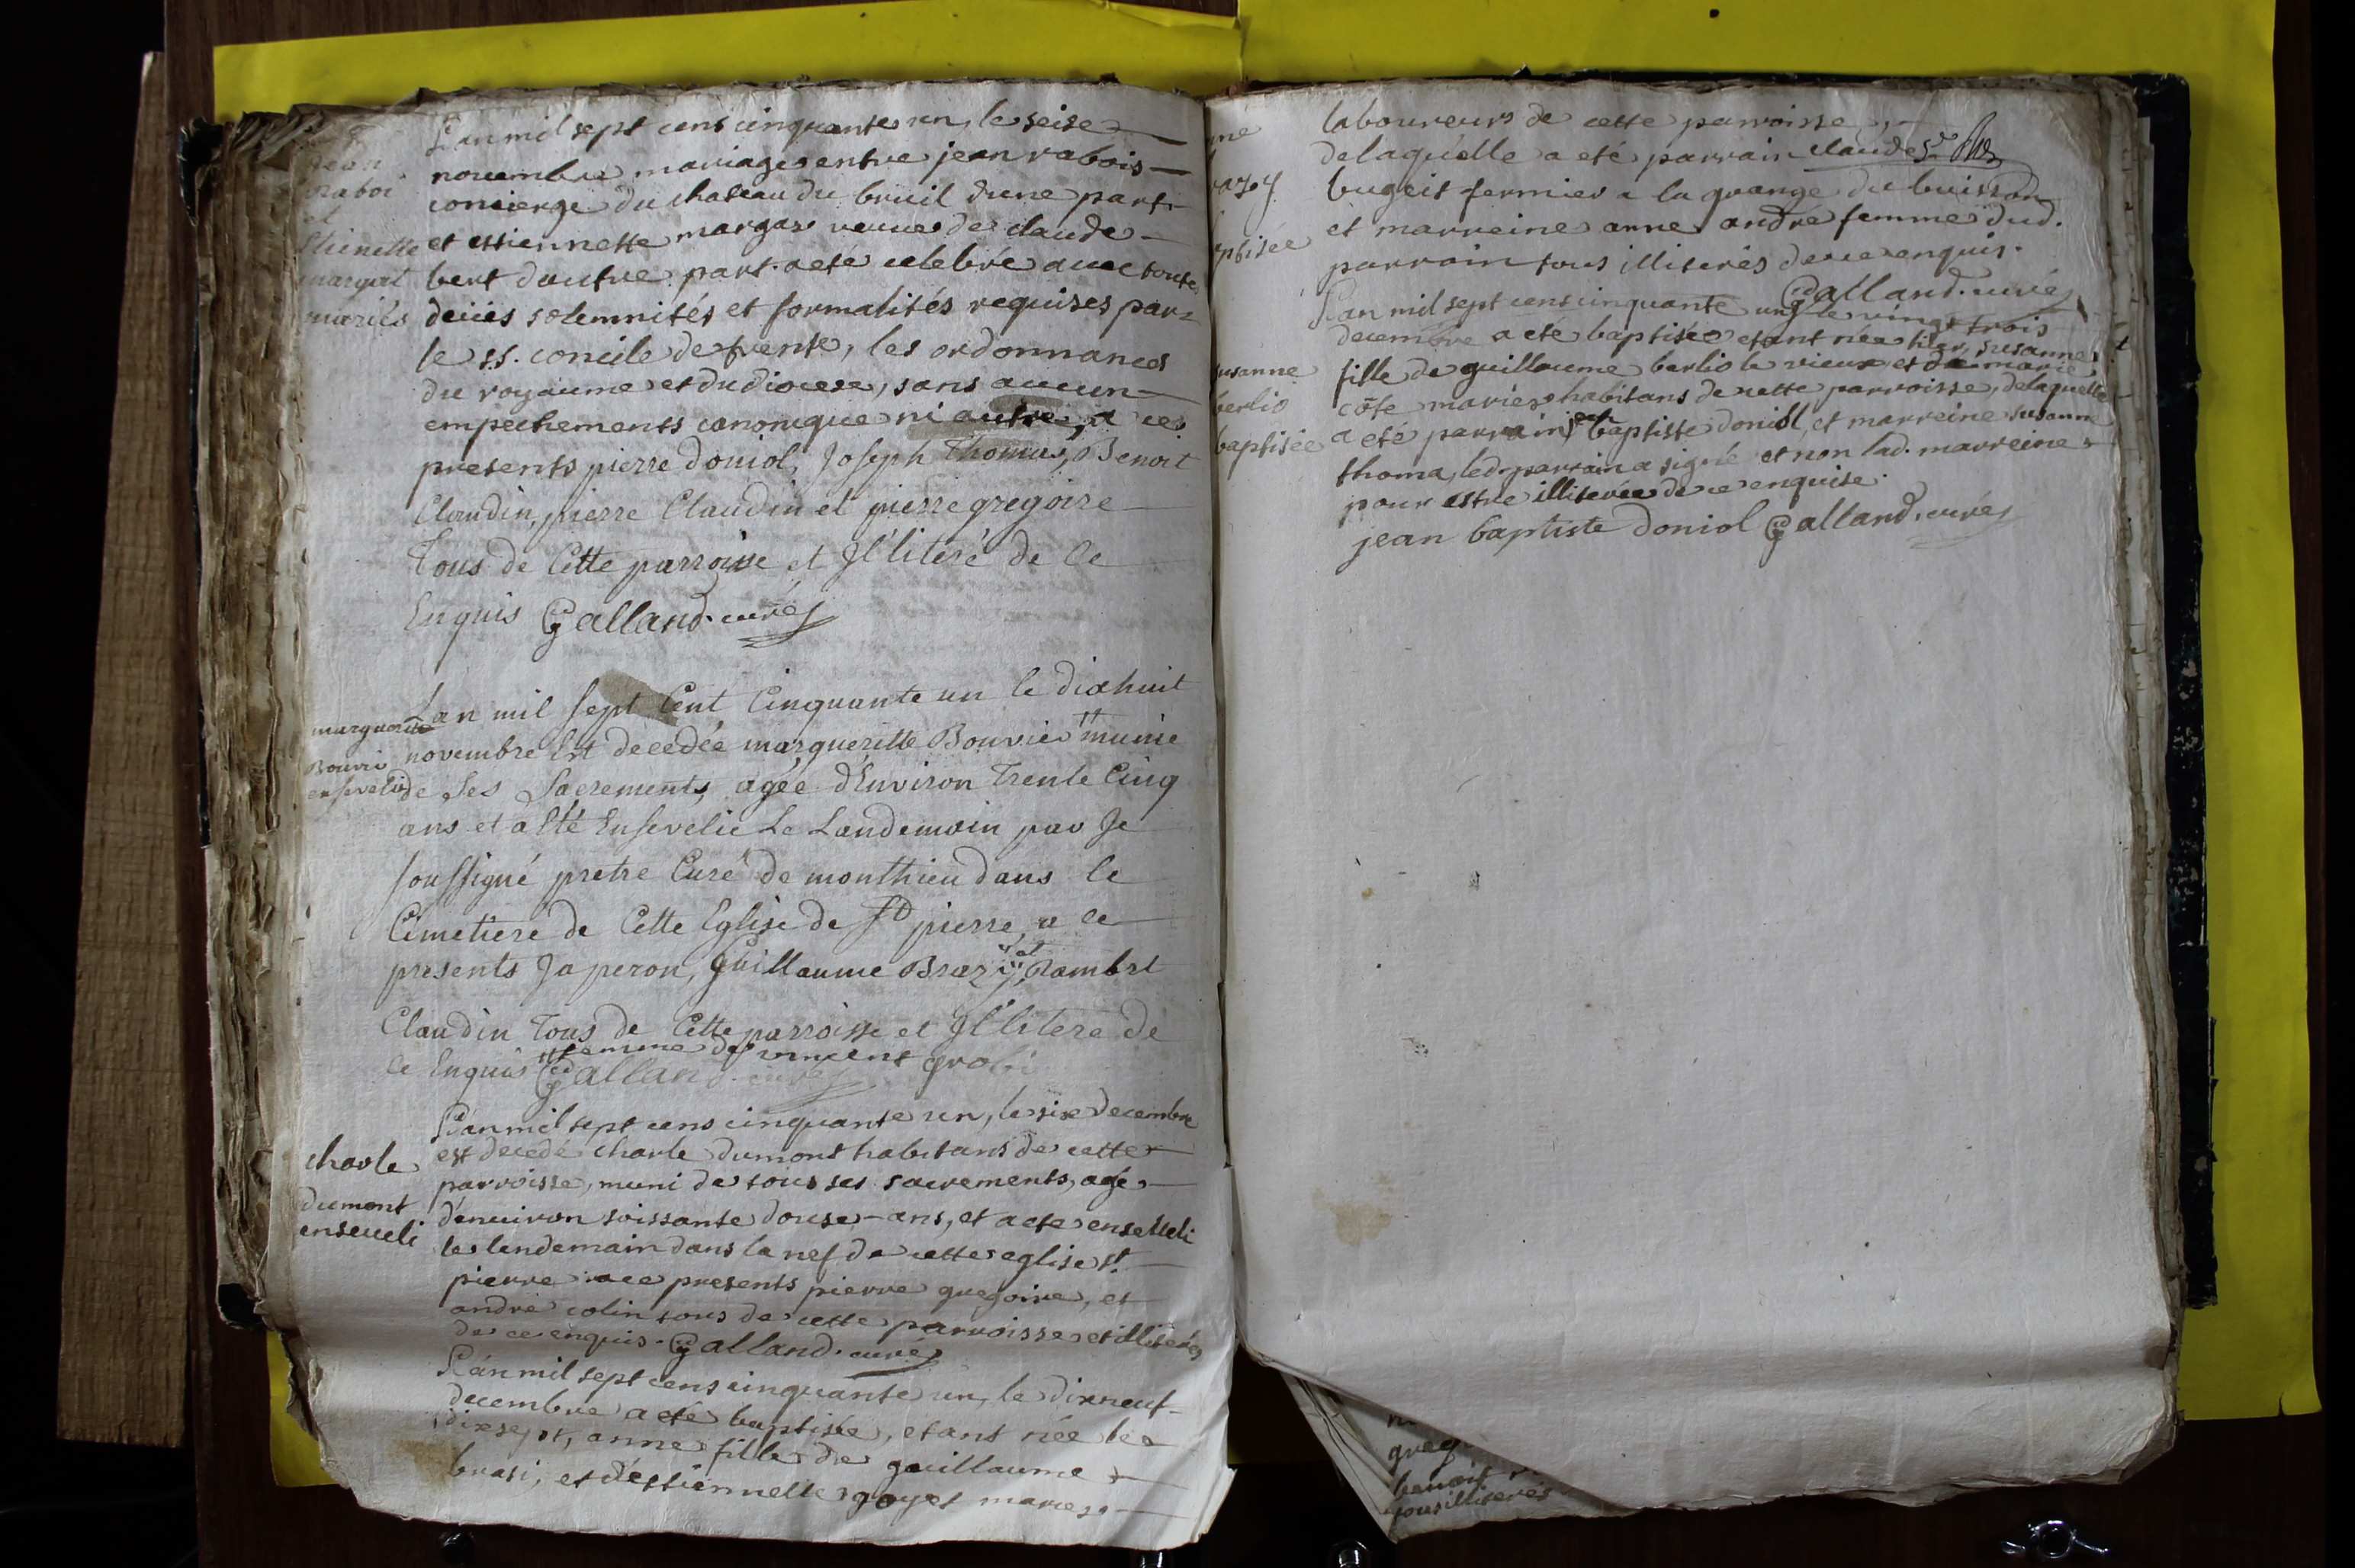 jean
raboi
et
Etiennette
margat
mariés
L'an mil sept cens cinquante un, le seise
novembre mariage entre jean rabois
concierge du chateau du bruil d'une part
et estiennette margas veuve de claude
bert d'autre part. a eté celebré avec toutes
deües solemnités et formalités requises par
le ss. concile de trente, les ordonnances
du royaume et du diocese, sans aucun
empechements canonique ni autre, a ce
presents pierre doniol, Joseph Thomas, Benoit
Claudin, pierre Claudin et pierre gregoire
Tous de Cette parroisse et Jlliteré de Ce
Enquis Galland. curé
marguerite
Bouvié
ensevelie
Lan mil sept Cent Cinquante un le dixhuit
novembre Est decedée margueritte Bouvier munie
de Ses Sacrements, agée d'Environ Trente Cinq
ans et a Eté Ensevelie Le Landemain par Je
soussigné pretre Curé de monthieu dans le
Cimetiere de Cette Eglise de St pierre, a ce
presents Japeron, Guillaume Brazy, et Rambert
Claudin Tous de Cette parroisse et Jlliteré de
ce Enquis femme de vincent grobi
Galland. curé
charle
dumont
enseveli
L'an mil sept cens cinquante un, le six decembre
est decedé charle dumont habitans de cette
parroisse, muni de tous ses sacrements, agé
d'environ soissante douse ans, et a eté enseveli
le lendemain dans la nef de cette eglise st.
pierre a ce presents pierre gregoire, et
andré colin tous de cette parroisse et illiterés
de ce enquis. Galland. curé
L'an mil sept cens cinquante un, le dixneuf
decembre a eté baptisée, etant née le
dixsept, anne fille de guillaume
brasi, et d'estiennette goyet mariez
laboureurs de cette parroisse,
delaquelle a eté parrain claude
bugeit fermier a la grange du buisson
et marreine anne andré femme dud.
parrain tous illiterés de ce enquis.
Galland. curé
susanne
berlio
baptisée
L'an mil sept cens cinquante un le vingt trois
decembre a eté baptisée etant née hier, susanne
fille de guillaume berlio le vieux et de marie
côte mariez habitans de cette parroisse, delaquelle
a eté parrain jean baptiste doniol, et marreine susanne
thoma, led. parrain a signé et non lad. marreine
pour estre illiterée de ce enquise.
jean baptiste doniol Galland. curé
greg
benoit
tous illiterés